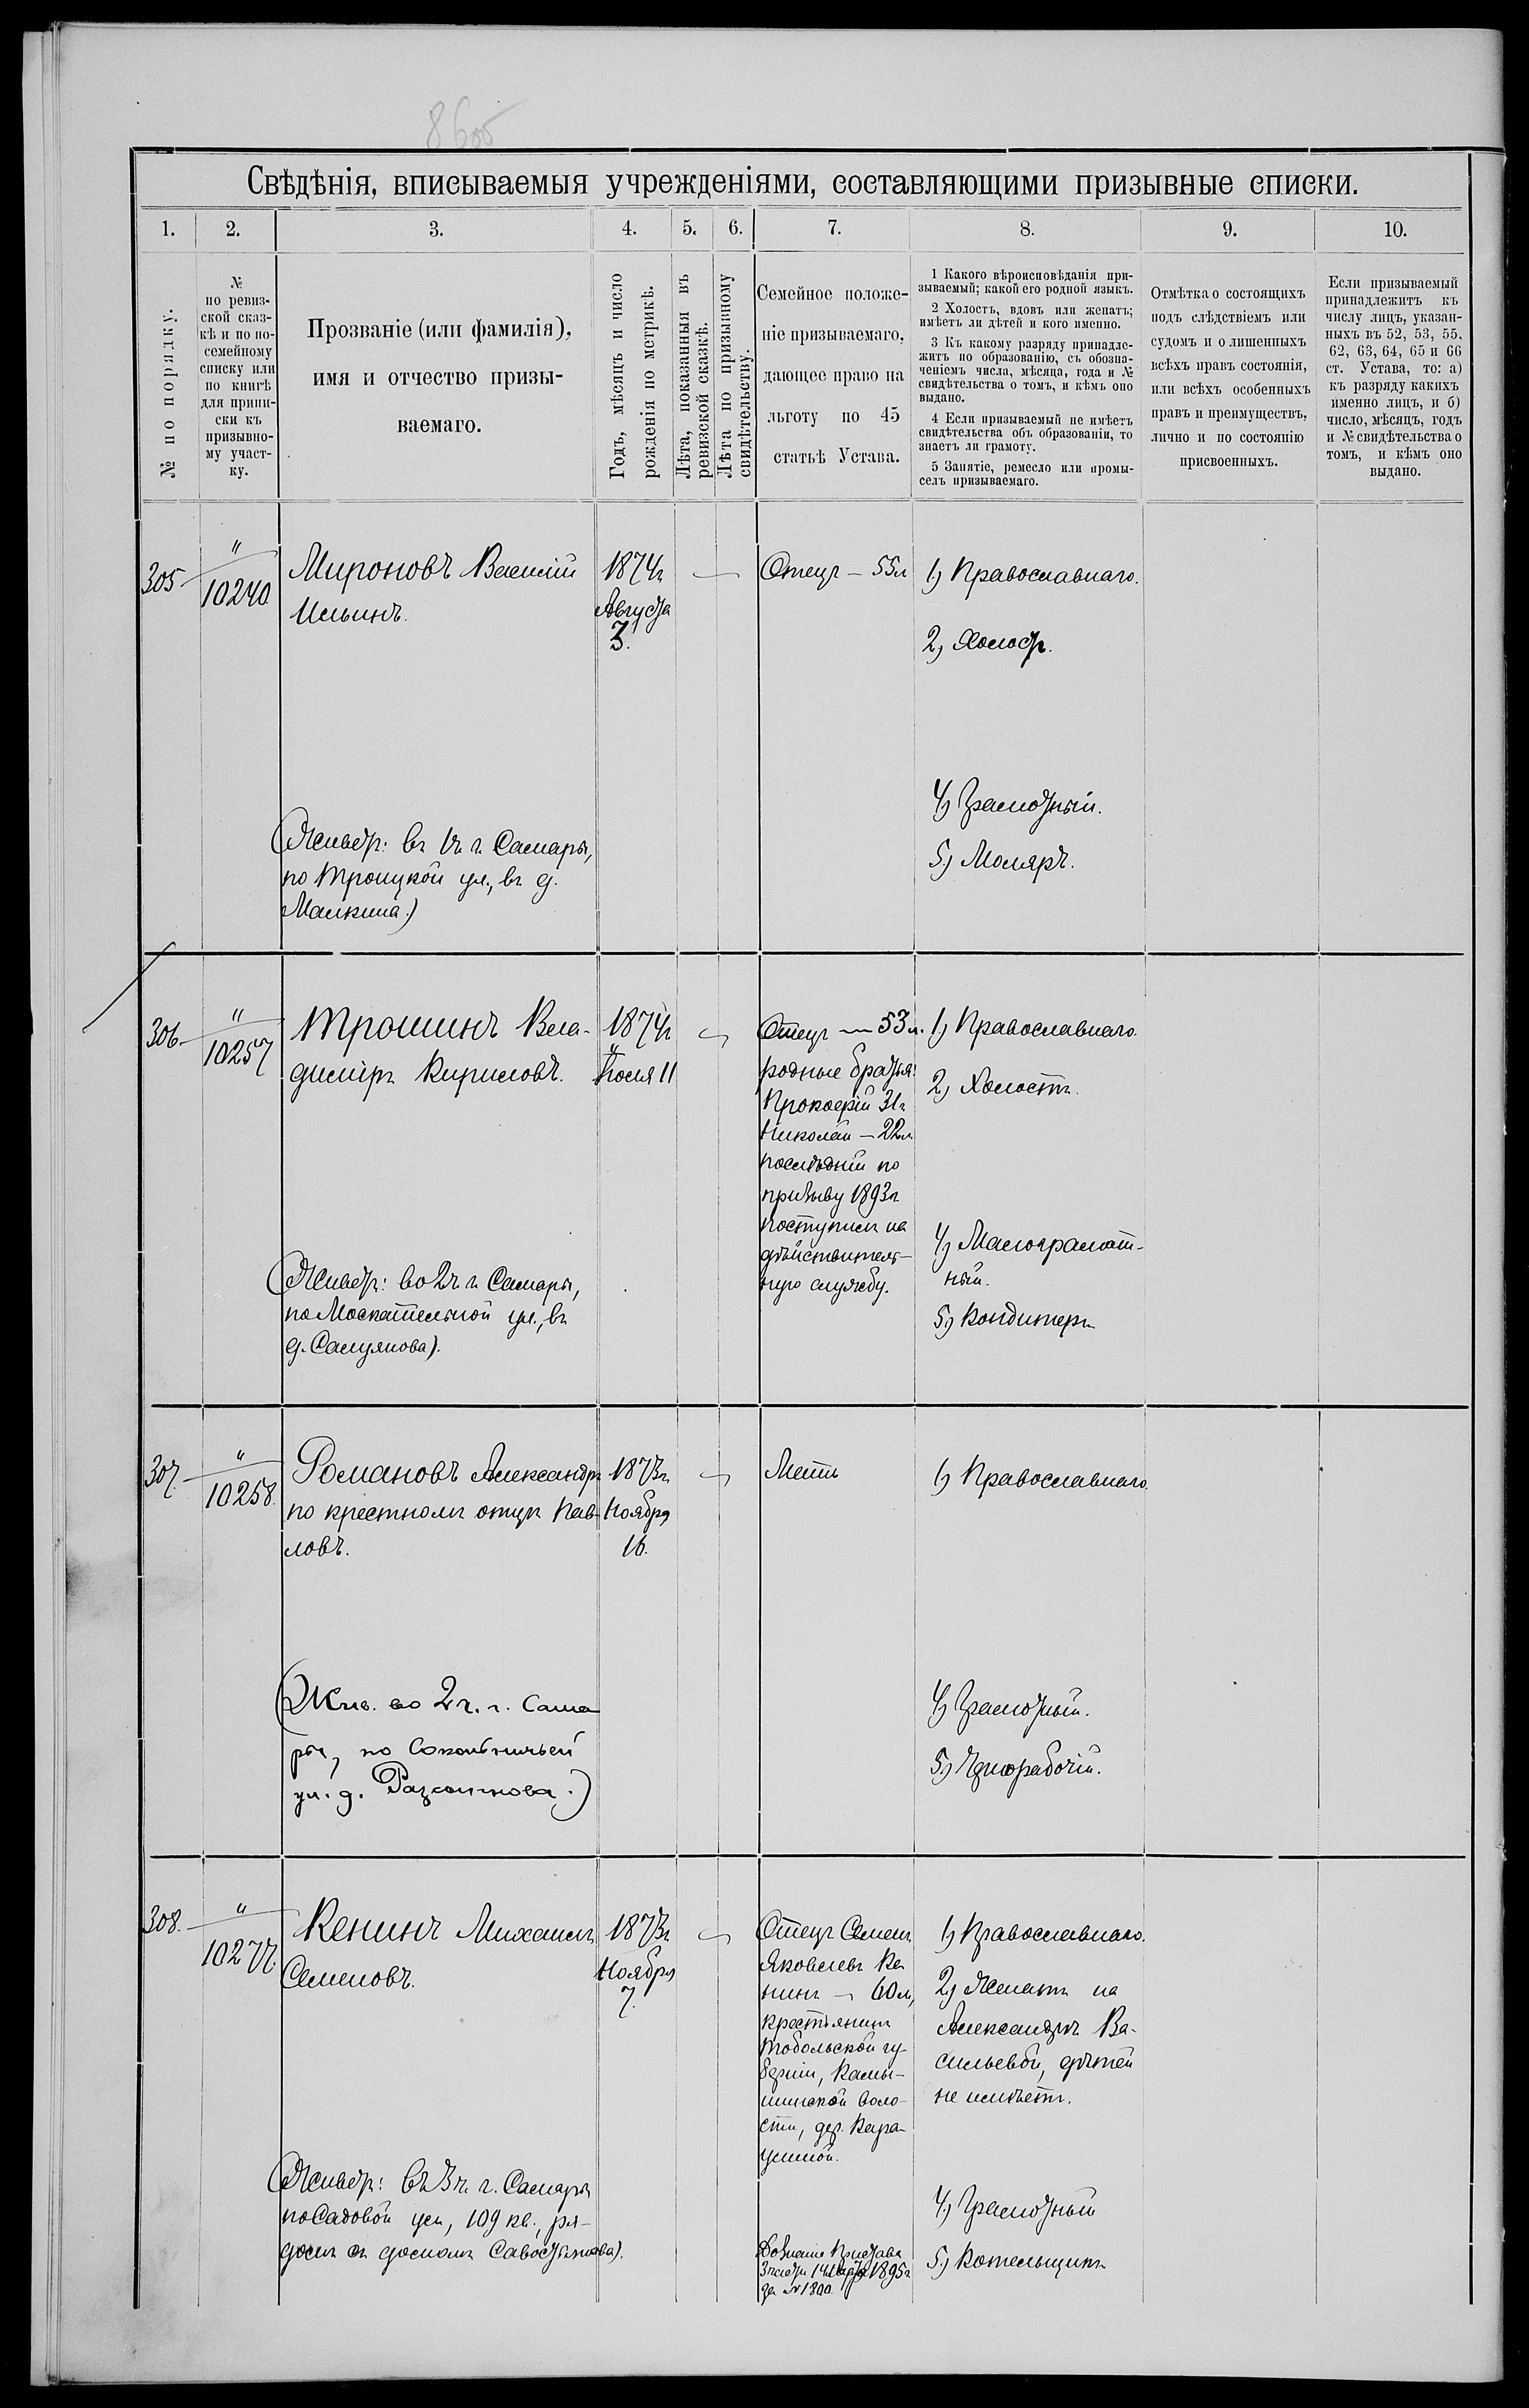 Свѣдѣнія, вписываемыя учрежденіями, составляющими призывные списки.
1. 2. 3. 4. 5. 6. 7. 8. 9. 10.
№ по порядку.
№
по ревиз-
ской сказ-
кѣ и по по-
семейному
списку или
по книгѣ
для припи-
ски къ
призывно-
му участ-
ку.
Прозваніе (или фамилія),
имя и отчество призы-
ваемаго.
Годъ, мѣсяцъ и число
рожденія по метрикѣ.
Лѣта, показанныя въ
ревизской сказкѣ.
Лѣта по призывному
свидѣтельству.
Семейное положе-
ніе призываемаго,
дающее право на
льготу по 45
статьѣ Устава.
1 Какого вѣроисповѣданія при-
зываемый; какой его родной языкъ.
2 Холостъ, вдовъ или женатъ;
имѣетъ ли дѣтей и кого именно.
3 Къ какому разряду принадле-
житъ по образованію, съ обозна-
ченіемъ числа, мѣсяца, года и №
свидѣтельства о томъ, и кѣмъ оно
выдано.
4 Если призываемый не имѣетъ
свидѣтельства объ образованіи, то
знаетъ ли грамоту.
5 Занятіе, ремесло или промы-
селъ призываемаго.
Отмѣтка о состоящихъ
подъ слѣдствіемъ или
судомъ и о лишенныхъ
всѣхъ правъ состоянія,
или всѣхъ особенныхъ
правъ и преимуществъ,
лично и по состоянію
присвоенныхъ.
Если призываемый
принадлежитъ къ
числу лицъ, указан-
ныхъ въ 52, 53, 55,
62, 63, 64, 65 и 66
ст. Устава, то: а)
къ разряду какихъ
именно лицъ, и б)
число, мѣсяцъ, годъ
и № свидѣтельства о
томъ, и кѣмъ оно
выдано.
305
"
10240
Мироновъ Василій
Ильинъ.
(Живетъ: въ 1ч. г. Самары,
по Троицкой ул., въ д.
Малкина.)
1874г
Августа
3.
Отецъ - 55л
1) Православнаго.
2) Холостъ.
4) Грамотный.
5) Моляръ.
306
"
10257
Трошинъ Вла-
диміръ Кириловъ.
(Живетъ: во 2ч. г. Самары,
по Москательной ул., въ
д.
1874г
Іюля 11
Отецъ — 53л.
родные братья:
Прокофій 31г
Николай - 22л.
послѣдній по
призыву 1893г
поступилъ на
дѣйствитель-
ную службу.
1) Православнаго.
2) Холостъ.
4) Малограмот-
ный.
5) Кондитеръ
307.
"
10258.
Романовъ Александръ
по крестномъ отцѣ Пав-
ловъ.
(Жив. во 2ч. г. Сама
ры, по Сокольничьей
ул. д.
1873г
Ноября
16.
Мать
1) Православнаго.
4) Грамотный.
5) Чернорабочій.
308.
"
10277.
Кенинъ Михаилъ
Семеновъ.
(Живетъ: въ 3ч. г. Самары
по Садовой ул, 109 кв., ря-
домъ съ домомъ Савостьянова).
1873г
Ноября
7.
Отецъ Семенъ
Яковлевъ Ке
нинъ — 60л,
крестьянинъ
Тобольской гу-
берніи,
волo-
сти, дер.
Дознаніе Пристава
3 части 14 Марта 1895г
за № 1800
1) Православнаго.
2) Женатъ на
Александрѣ Ва-
сильевой, дѣтей
не имѣетъ.
4) Грамотный
5) Котельщикъ